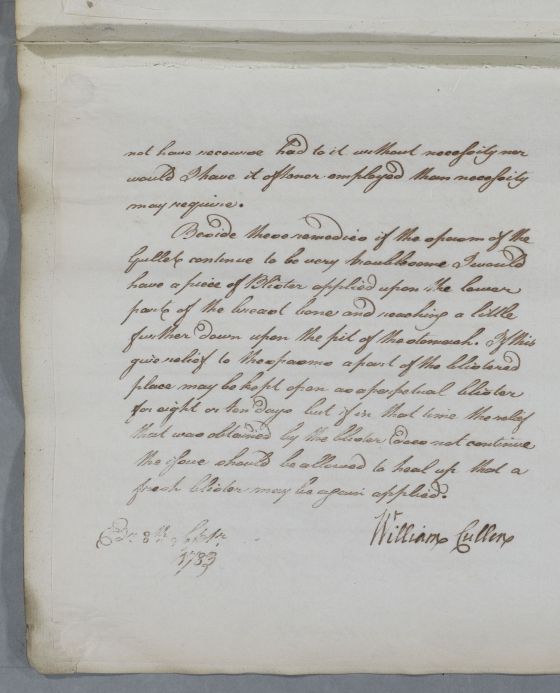 not have recourse had to it without necessity nor
would I have it oftener employed than necessity
may require.
Beside these remedies if the spasm of the
Gullet continue to be very troublesome I would
have a piece of Blister applied upon the lower
part of the breast bone and reaching a little
further down upon the pit of the stomach. If this
give relief to the spasms a part of the blistered
place may be kept open as a perpetual blister
for eight or ten days but if in that time the relief
that was obtained by the blister does not continue
the issue should be allowed to heal up that a
fresh blister may be again applied.
William Cullen
8th
1783